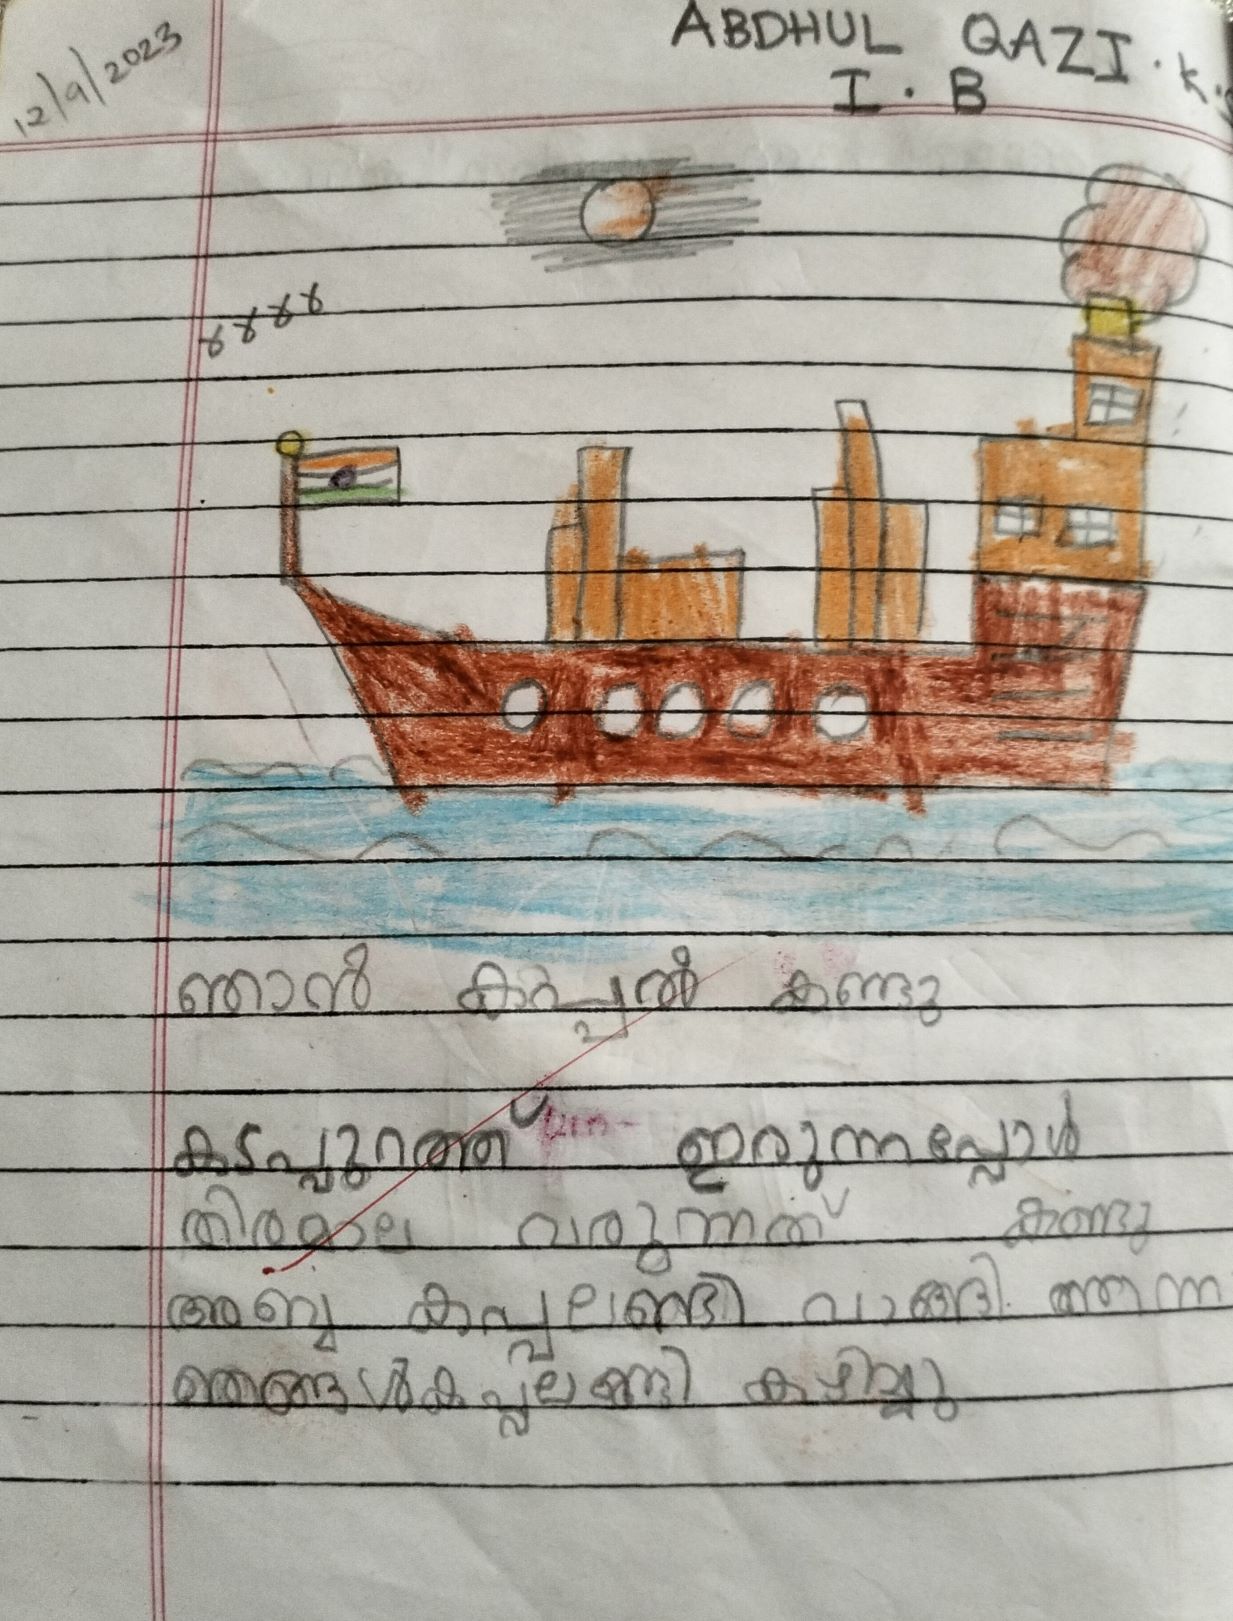 12/9/2023
ABDHUL QAZI. K.
I. B
ഞാൻ കപ്പൽ കണ്ടു
കടപ്പുറത്ത് ഇരുന്നപ്പോൾ
തിരമാല വരുന്നത് കണ്ടു
അബ്ബ കപ്പലണ്ടി വാങ്ങി തന്ന
ഞങ്ങൾകപ്പലണ്ടി കഴിച്ചു